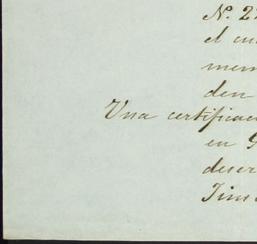 N. 22
el cu
mem
den
Una certificac
en G
descr
Tims